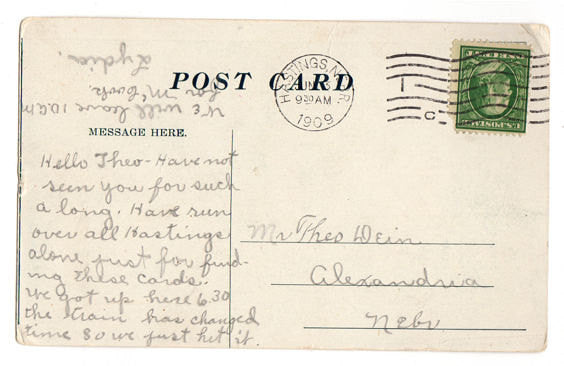 POST CARD
HASTINGS, NEBR.
JUN
930 AM
1909
MESSAGE HERE.
Hello Theo - Have not
seen you for such
a long. Have run
over all Hastings
alone just for find-
ing these cards.
We got up here 6.30
the train has changed
time so we just hit it.
We will leave 10 a.m
for
Lydia.
Mr Theo Dein
Alexandria
Nebr